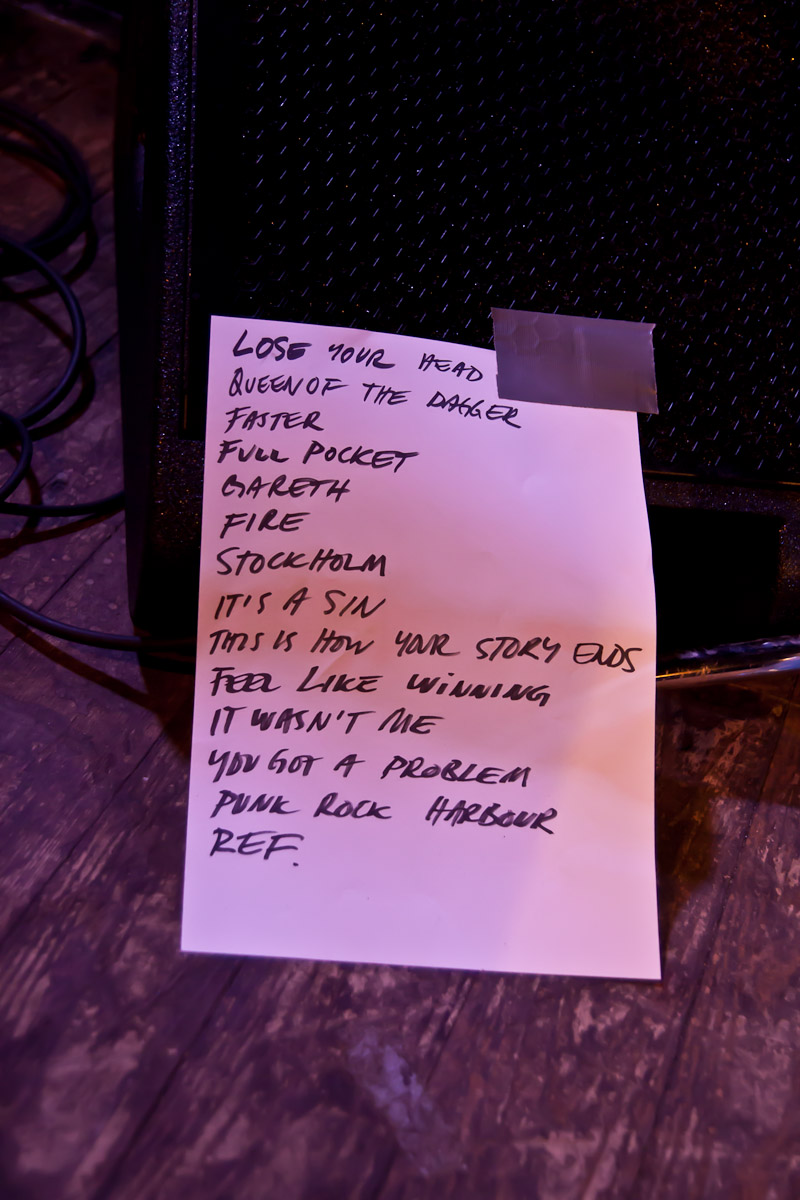 LOSE YOUR HEAD
QUEEN OF THE DAGGER
FASTER
FULL POCKET
GARETH
FIRE
STOCKHOLM
IT'S A SIN
THIS IS HOW YOUR STORY ENDS
FEEL LIKE WINNING
IT WASN'T ME
YOU GOT A PROBLEM
PUNK ROCK HARBOUR
REF.